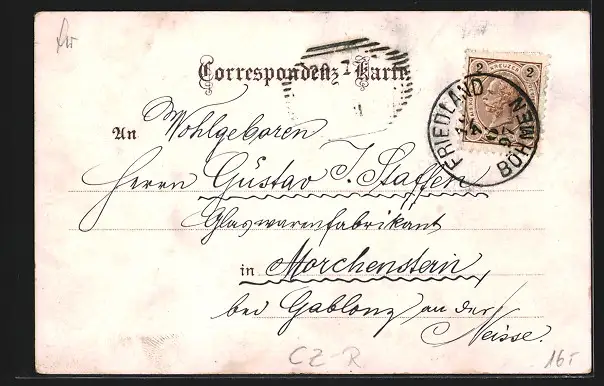 Correspondenz-Karte
2 KREUZER 2
FRIEDLAND
BÖHMEN
An Wohlgeboren
Herrn Gustav J. Staffen
Glaswarenfabrikant
in Morchenstern
bei Gablonz an der
Neisse.
CZ-R
16,-